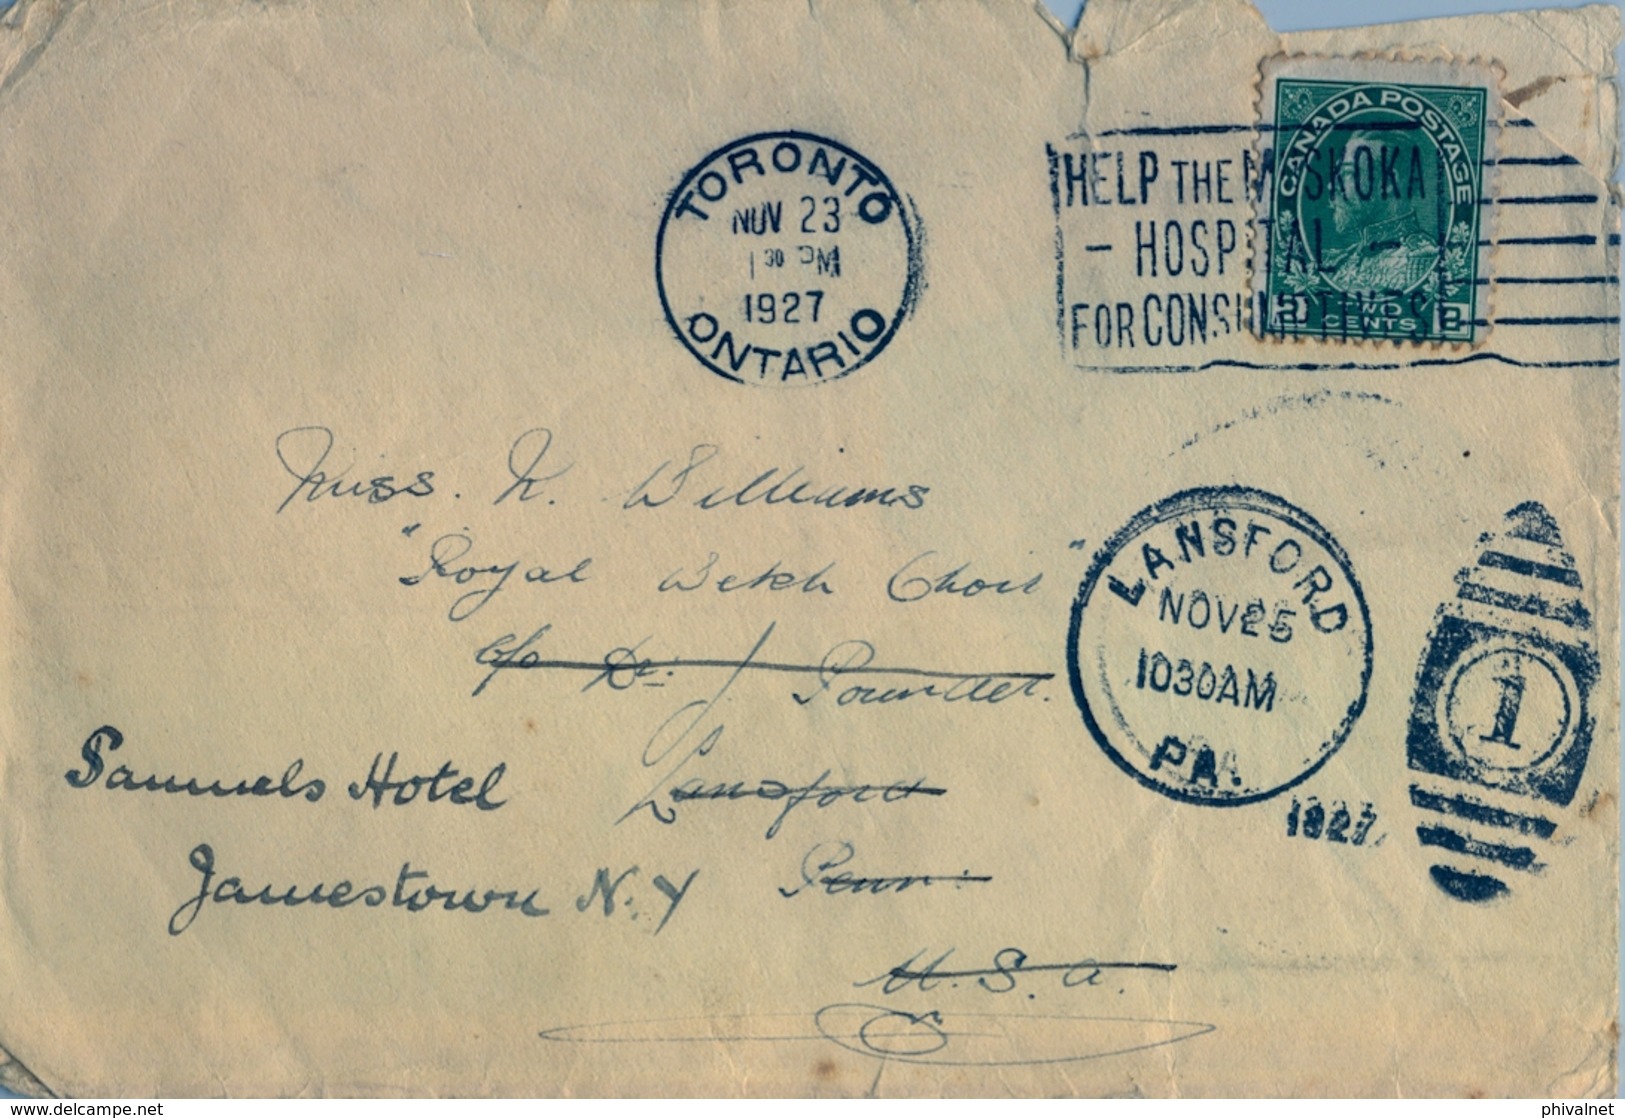 TORONTO
NOV 23
1 30 PM
1927
ONTARIO
HELP THE MUSKOKA
- HOSPITAL -
FOR CONSUMPTIVES
CANADA POSTAGE
2 TWO 2
CENTS
Miss. N. Williams
"Royal Welch Choir"
c/o Dr. J Pounder.
Lansford
Penn:
U.S.A.
Samuels Hotel
Jamestown N.Y
LANSFORD
NOV 25
10 30 AM
PA.
1927
1
www.delcampe.net
phivalnet